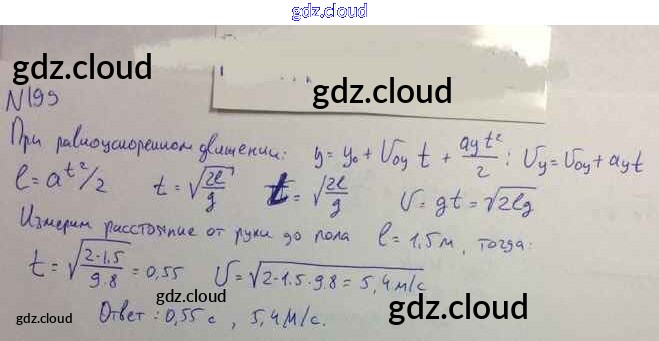 gdz.cloud
gdz.cloud
gdz.cloud
N199
При равноускоренном движении: y = y₀ + V₀y t + ayt²/2 ; Vy = V₀y + ayt
l = at²/2 t = √(2l/g) t = √(2l/g) V = gt = √2lg
Измерим расстояние от руки до пола l = 1,5м, тогда:
t = √(2·1,5/9.8) = 0,55 V = √2·1.5·9.8 = 5,4м/с
gdz.cloud
gdz.cloud
gdz.cloud
Ответ: 0,55 с, 5,4м/с.